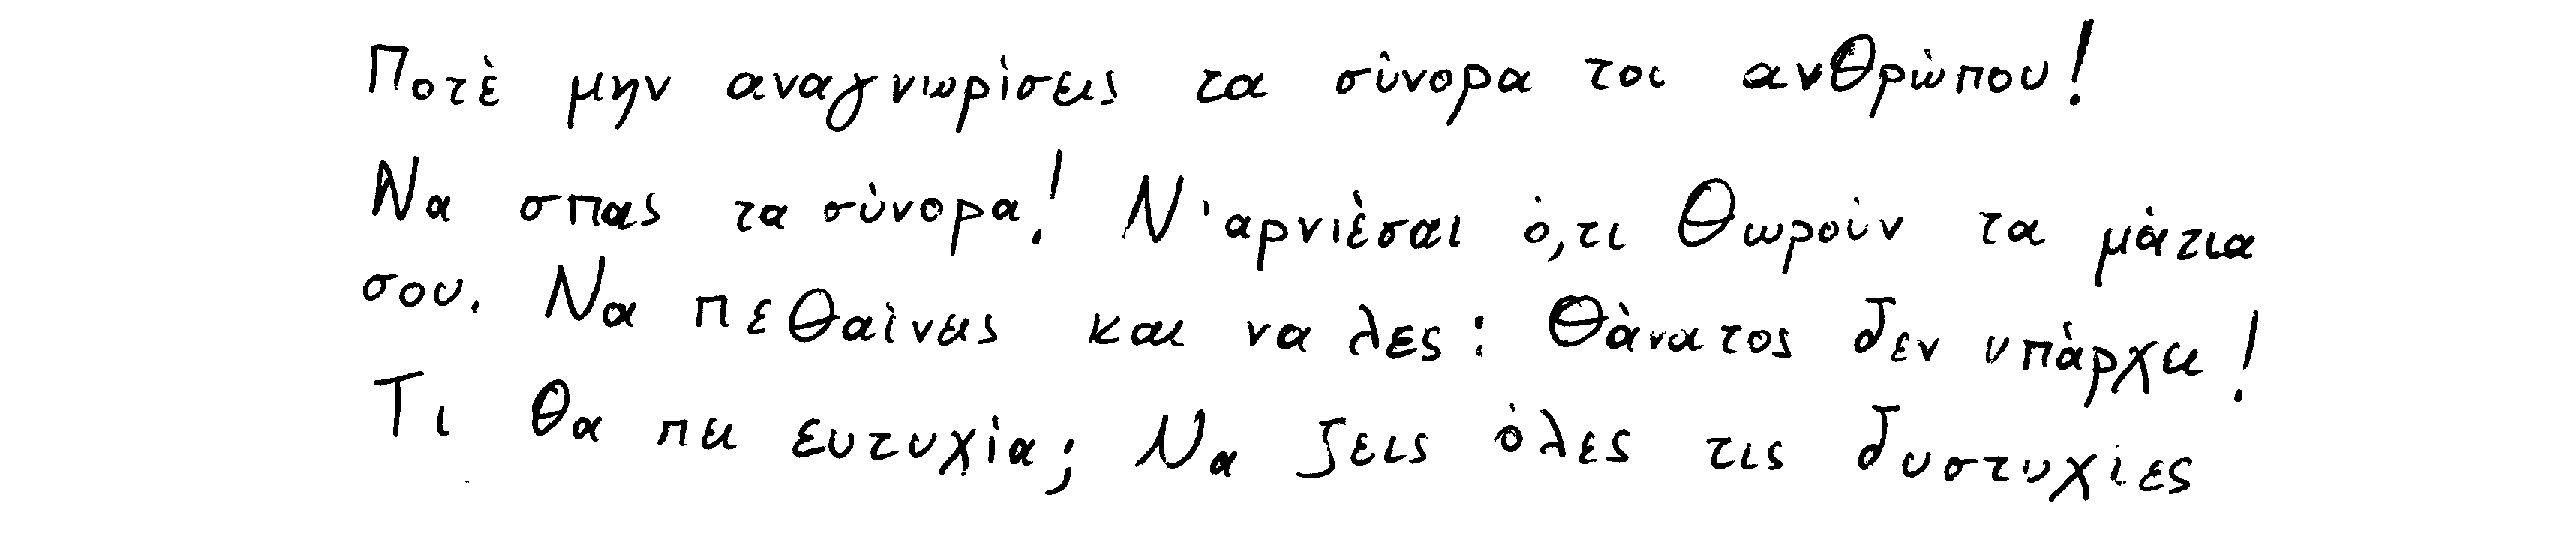 Ποτέ μην αναγνωρίσεις τα σύνορα τοι ανθρώπου!
Να σπας τα σύνορα! Ν'αρνιέσαι ό,τι θωρούν τα μάτια
σου. Να πεθαίνεις και να λες: Θάνατος δεν υπάρχει!
Τι θα πει ευτυχία; Να ζεις όλες τις δυστυχίες